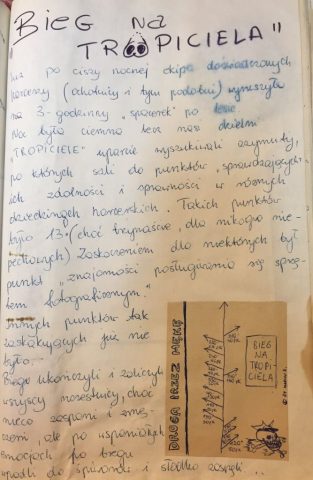 "BIEG NA
TROPICIELA"
po ciszy nocnej ekipa doświadczonych
harcerzy (ochotnicy i tym podobni) wyruszyła
na 3-godzinny "spacerek" po lesie.
Noc była ciemna lecz nasi dzielni
"TROPICIELE" uparcie wyszukiwali azymuty,
po których szli do punktów "sprawdzających"
ich zdolności i sprawności w różnych
dziedzinach harcerskich. Takich punktów
było 13. (choć trzynaście, dla nikogo nie-
pechowych) Zaskoczeniem dla niektórych był
punkt "znajomości posługiwania się sprzę-
tem fotograficznym."
Innych punktów tak
zaskakujących już nie
było.
Biegu ukończyli i zaliczyli
wszyscy uczestnicy, choć
nieco zaspani i zmę-
czeni, ale po wspaniałych
emocjach po biegu
wpadli do śpiworów i słodko zasnęli...
DROGA PRZEZ MĘKĘ
BIEG
NA
TROPI
CIELA